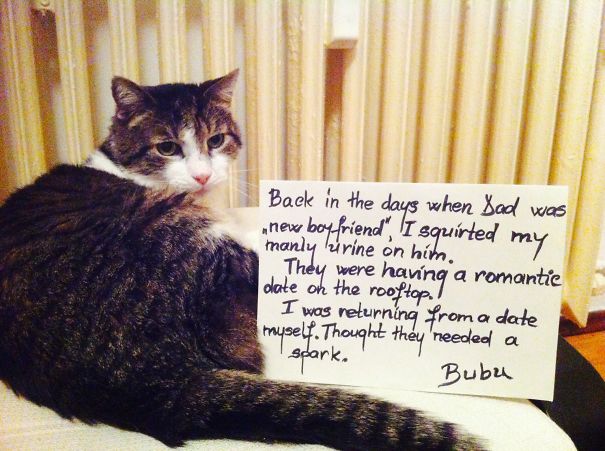 Back in the days when Dad was
„new boyfriend", I squirted my
manly urine on him.
They were having a romantic
date on the rooftop.
I was returning from a date
myself. Thought they needed a
spark.
Bubu